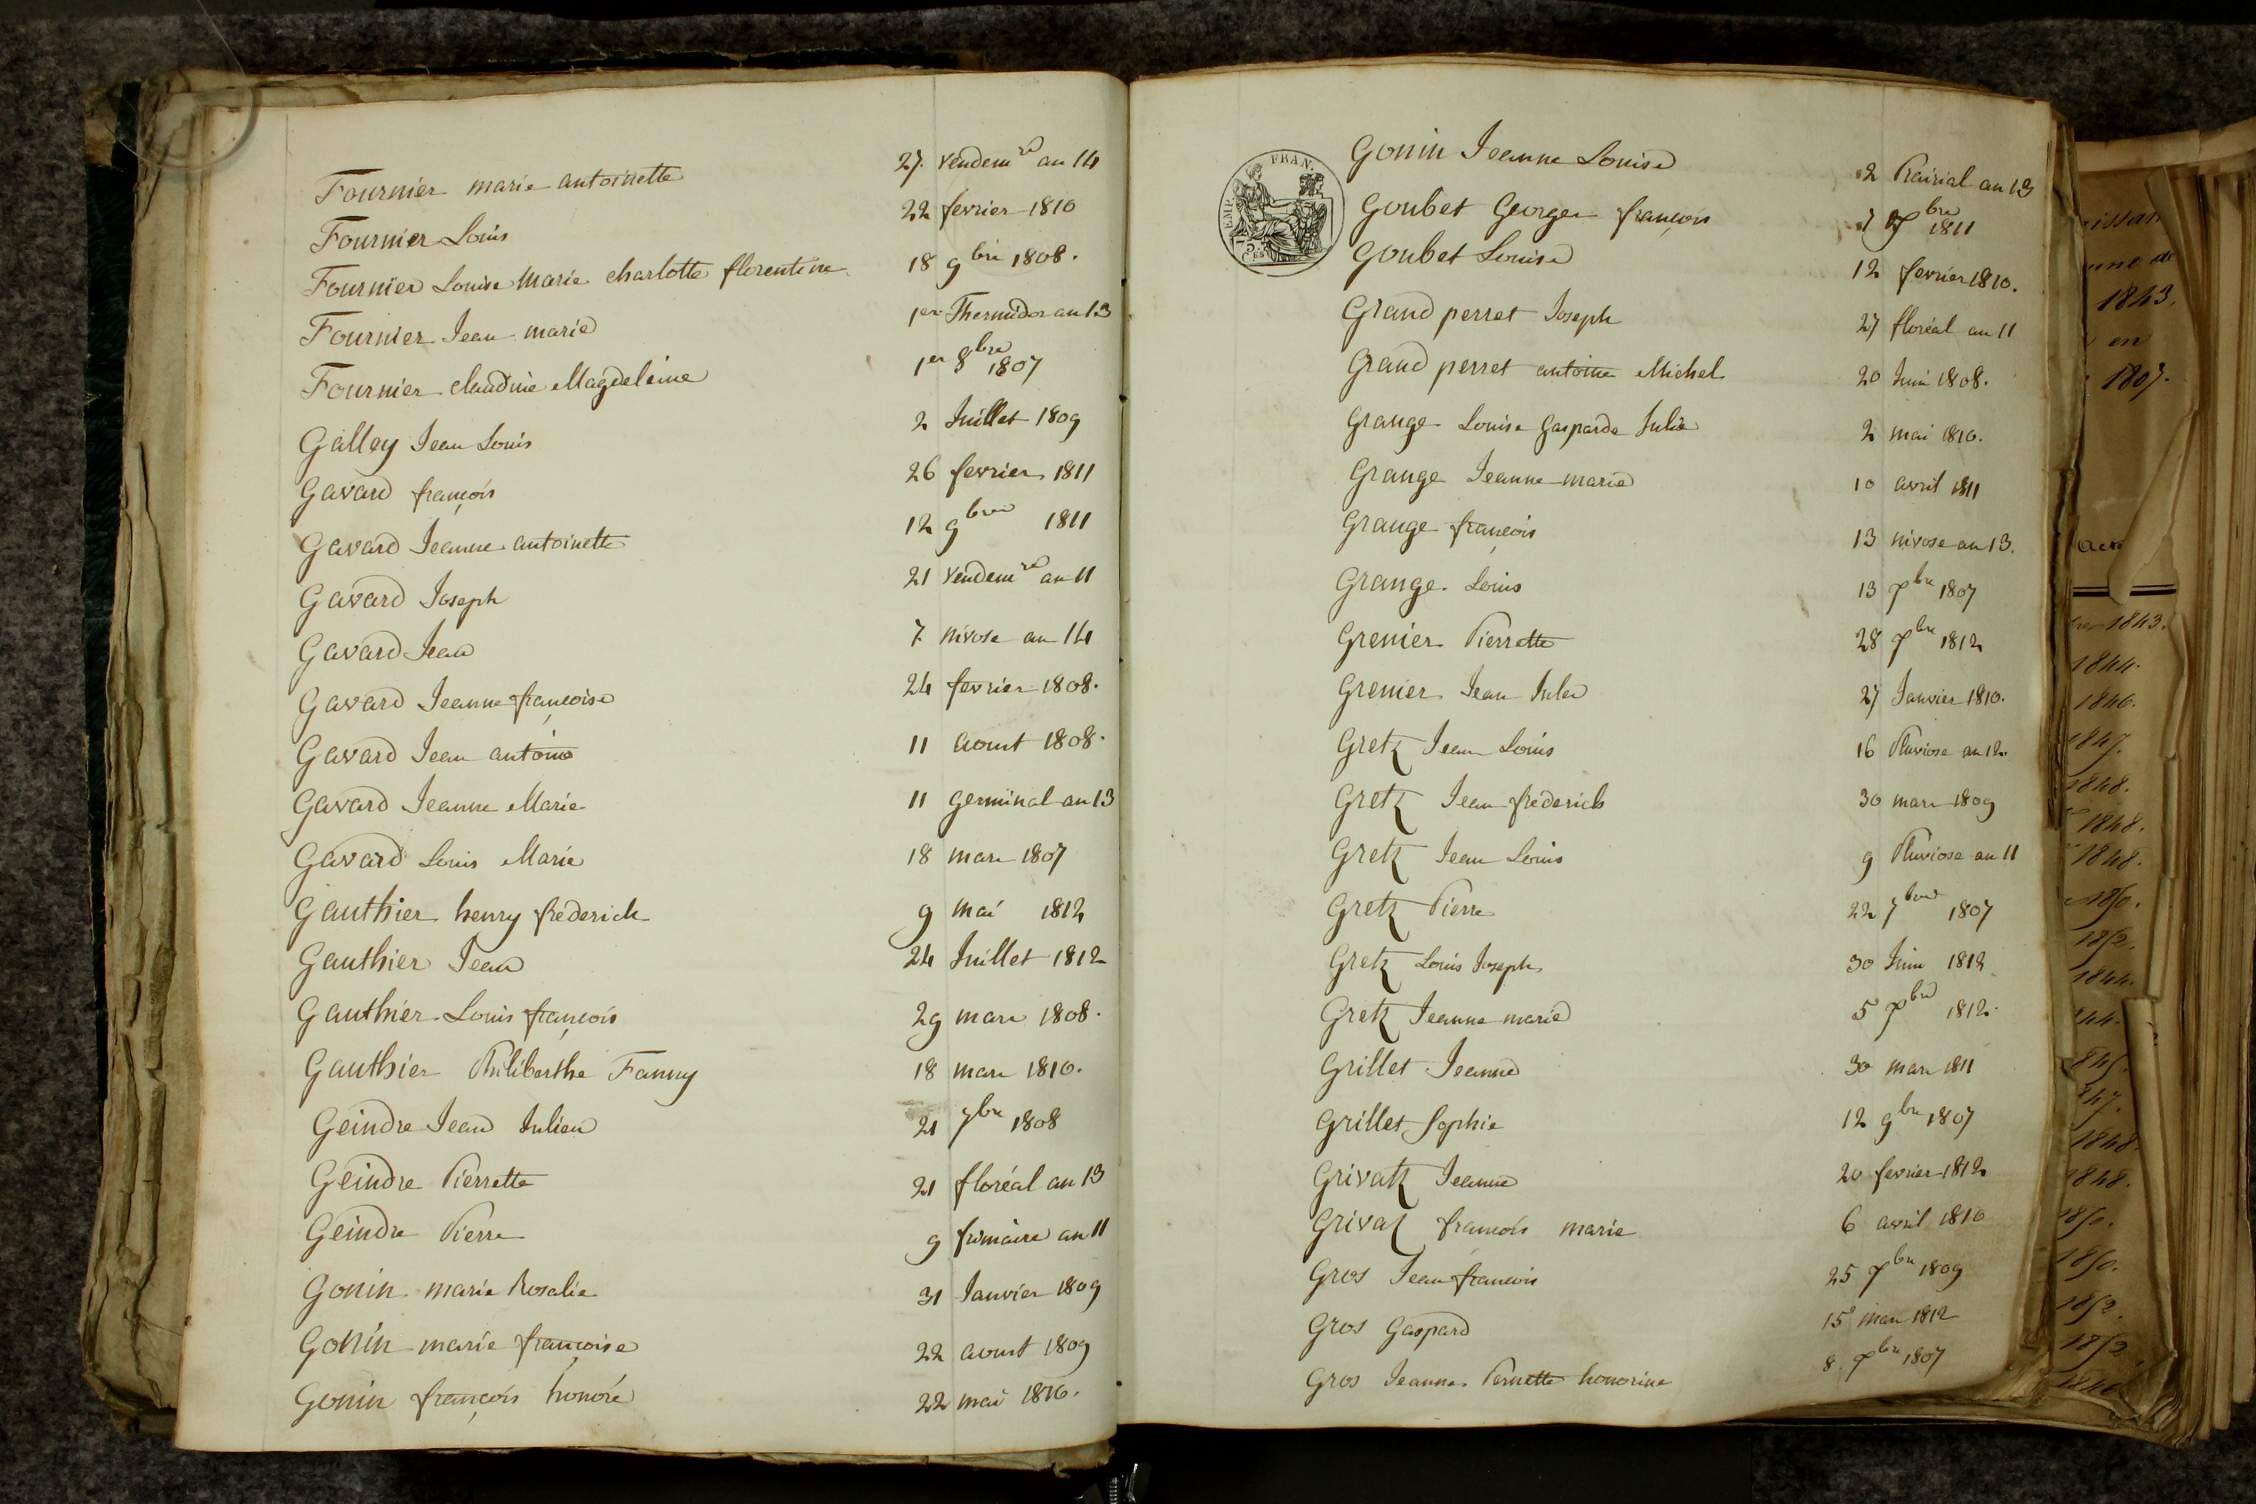 Fournier marie antoinette 27 vendem re an 14
Fournier Louis 22 fevrier 1810
Fournier Louise Marie charlotte florentine 18 9bre 1808.
Fournier Jean marie 1er Thermidor an 13
Fournier claudine Magdeleine 1er 8bre 1807
Galley Jean Louis 2 Juillet 1809
Gavard françois 26 fevrier 1811
Gavard Jeanne antoinette 12 9bre 1811
Gavard Joseph 21 vendem re an 11
Gavard Jean 7 nivose an 14
Gavard Jeanne françoise 24 fevrier 1808.
Gavard Jean antoine 11 aoust 1808.
Gavard Jeanne Marie 11 germinal an 13
Gavard Louis Marie 18 mars 1807
Gauthier henry frederich 9 mai 1812
Gauthier Jean 24 Juillet 1812
Gauthier Louis françois 29 mars 1808.
Gauthier Philiberthe Fanny 18 mars 1810.
Geindre Jean Julien 21 7bre 1808
Geindre Pierrette 21 floréal an 13
Geindre Pierre 9 frimaire an 11
Gonin marie Rosalie 31 Janvier 1809
Gonin marie françoise 22 aoust 1809
Gonin françois honoré 22 mai 1810.
EMP. FRAN.
75.
CES
Gonin Jeanne Louise 2 Prairial an 13
Goubet George françois 7bre 1811
Goubet Louise 12 fevrier 1810.
Grand perret Joseph 27 floréal an 11
Grand perret antoine Michel 20 Juin 1808.
Grange Louise Gasparde Julie 2 mai 1810.
Grange Jeanne marie 10 avril 1811
Grange françois 13 nivose an 13.
Grange Louis 13 7bre 1807
Grenier Pierrette 28 7bre 1812
Grenier Jean Jules 27 Janvier 1810.
Gretz Jean Louis 16 Pluviose an 12.
Gretz Jean frederich 30 mars 1809
Gretz Jean Louis 9 Pluviose an 11
Gretz Pierre 22 7bre 1807
Gretz Louis Joseph 30 Juin 1812
Gretz Jeanne marie 5 7bre 1812.
Grillet Jeanne 30 mars 1811
Grillet Sophie 12 9bre 1807
Grivatz Jeanne 20 fevrier 1812
Grivaz françois marie 6 avril 1810
Gros Jean françois 25 7bre 1809
Gros Gaspard 15 mars 1812
Gros Jeanne Pernette honorine 8 7bre 1807
1843.
en
1807.
1843.
1844.
1846.
1847.
1848.
1848.
1848.